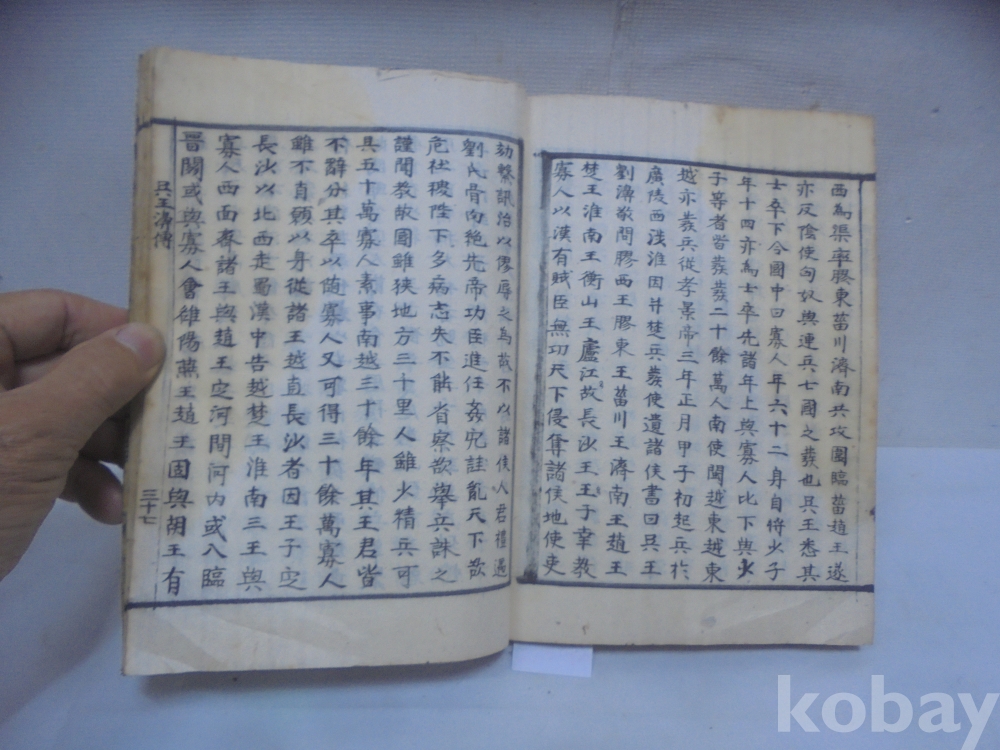 西為渠率膠東菑川濟南共攻圍臨菑趙王遂
亦反陰使匈奴與連兵七國之發也吳王悉其
士卒下令國中曰寡人年六十二身自將少子
年十四亦為士卒先諸年上與寡人比下與少
子等者皆發發二十餘萬人南使閩越東越東
越亦發兵從孝景帝三年正月甲子初起兵於
廣陵西涉淮因并楚兵發使遺諸侯書曰吳王
劉濞敬問膠西王膠東王菑川王濟南王趙王
楚王淮南王衡山王廬江故長沙王王子幸教
寡人以漢有賊臣無功天下侵奪諸侯地使吏
劾繫訊治以僇辱之為故不以諸侯人君禮遇
劉氏骨肉絕先帝功臣進任姦宄詿亂天下欲
危社稷陛下多病志失不能省察欲舉兵誅之
謹聞教敝國雖狹地方三千里人雖少精兵可
具五十萬寡人素事南越三十餘年其王君皆
不辭分其卒以隨寡人又可得三十餘萬寡人
雖不肖願以身從諸王越直長沙者因王子定
長沙以北西走蜀漢中告越楚王淮南三王與
寡人西面齊諸王與趙王定河間河內或入臨
晉關或與寡人會雒陽燕王趙王固與胡王有
吳王濞傳
三十七
kobay